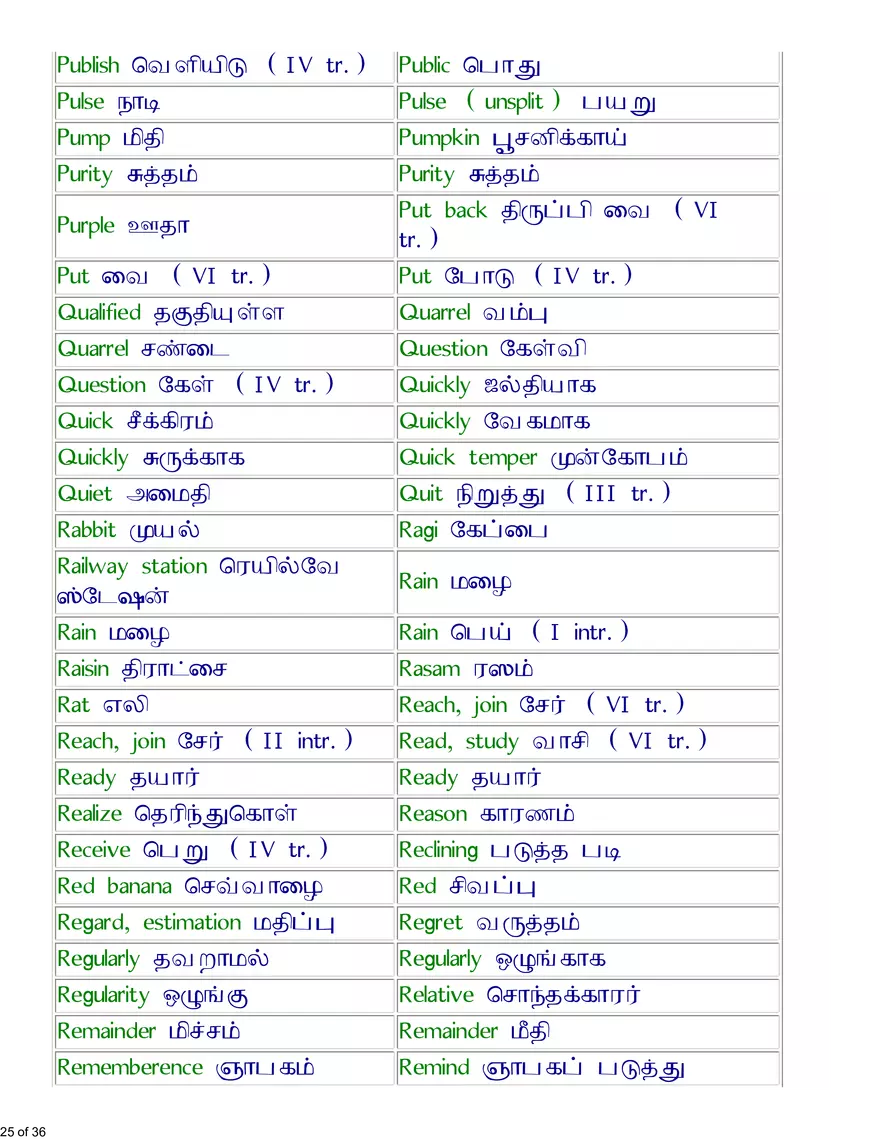 Publish வெளியிடு ( IV tr. ) Public பொது
Pulse நாடி Pulse ( unsplit ) பயறு
Pump மிதி Pumpkin பூசனிக்காய்
Purity சுத்தம் Purity சுத்தம்
Purple ஊதா Put back திருப்பி வை ( VI
tr. )
Put வை ( VI tr. ) Put போடு ( IV tr. )
Qualified தகுதியுள்ள Quarrel வம்பு
Quarrel சண்டை Question கேள்வி
Question கேள் ( IV tr. ) Quickly ஜல்தியாக
Quick சீக்கிரம் Quickly வேகமாக
Quickly சுருக்காக Quick temper முன்கோபம்
Quiet அமைதி Quit நிறுத்து ( III tr. )
Rabbit முயல் Ragi கேப்பை
Railway station ரெயில்வே
ஸ்டேஷன் Rain மழை
Rain மழை Rain பெய் ( I intr. )
Raisin திராட்சை Rasam ரஸம்
Rat எலி Reach, join சேர் ( VI tr. )
Reach, join சேர் ( II intr. ) Read, study வாசி ( VI tr. )
Ready தயார் Ready தயார்
Realize தெரிந்துகொள் Reason காரணம்
Receive பெறு ( IV tr. ) Reclining படுத்த படி
Red banana செவ்வாழை Red சிவப்பு
Regard, estimation மதிப்பு Regret வருத்தம்
Regularly தவறாமல் Regularly ஒழுங்காக
Regularity ஒழுங்கு Relative சொந்தக்காரர்
Remainder மிச்சம் Remainder மீதி
Rememberence ஞாபகம் Remind ஞாபகப் படுத்து
25 of 36